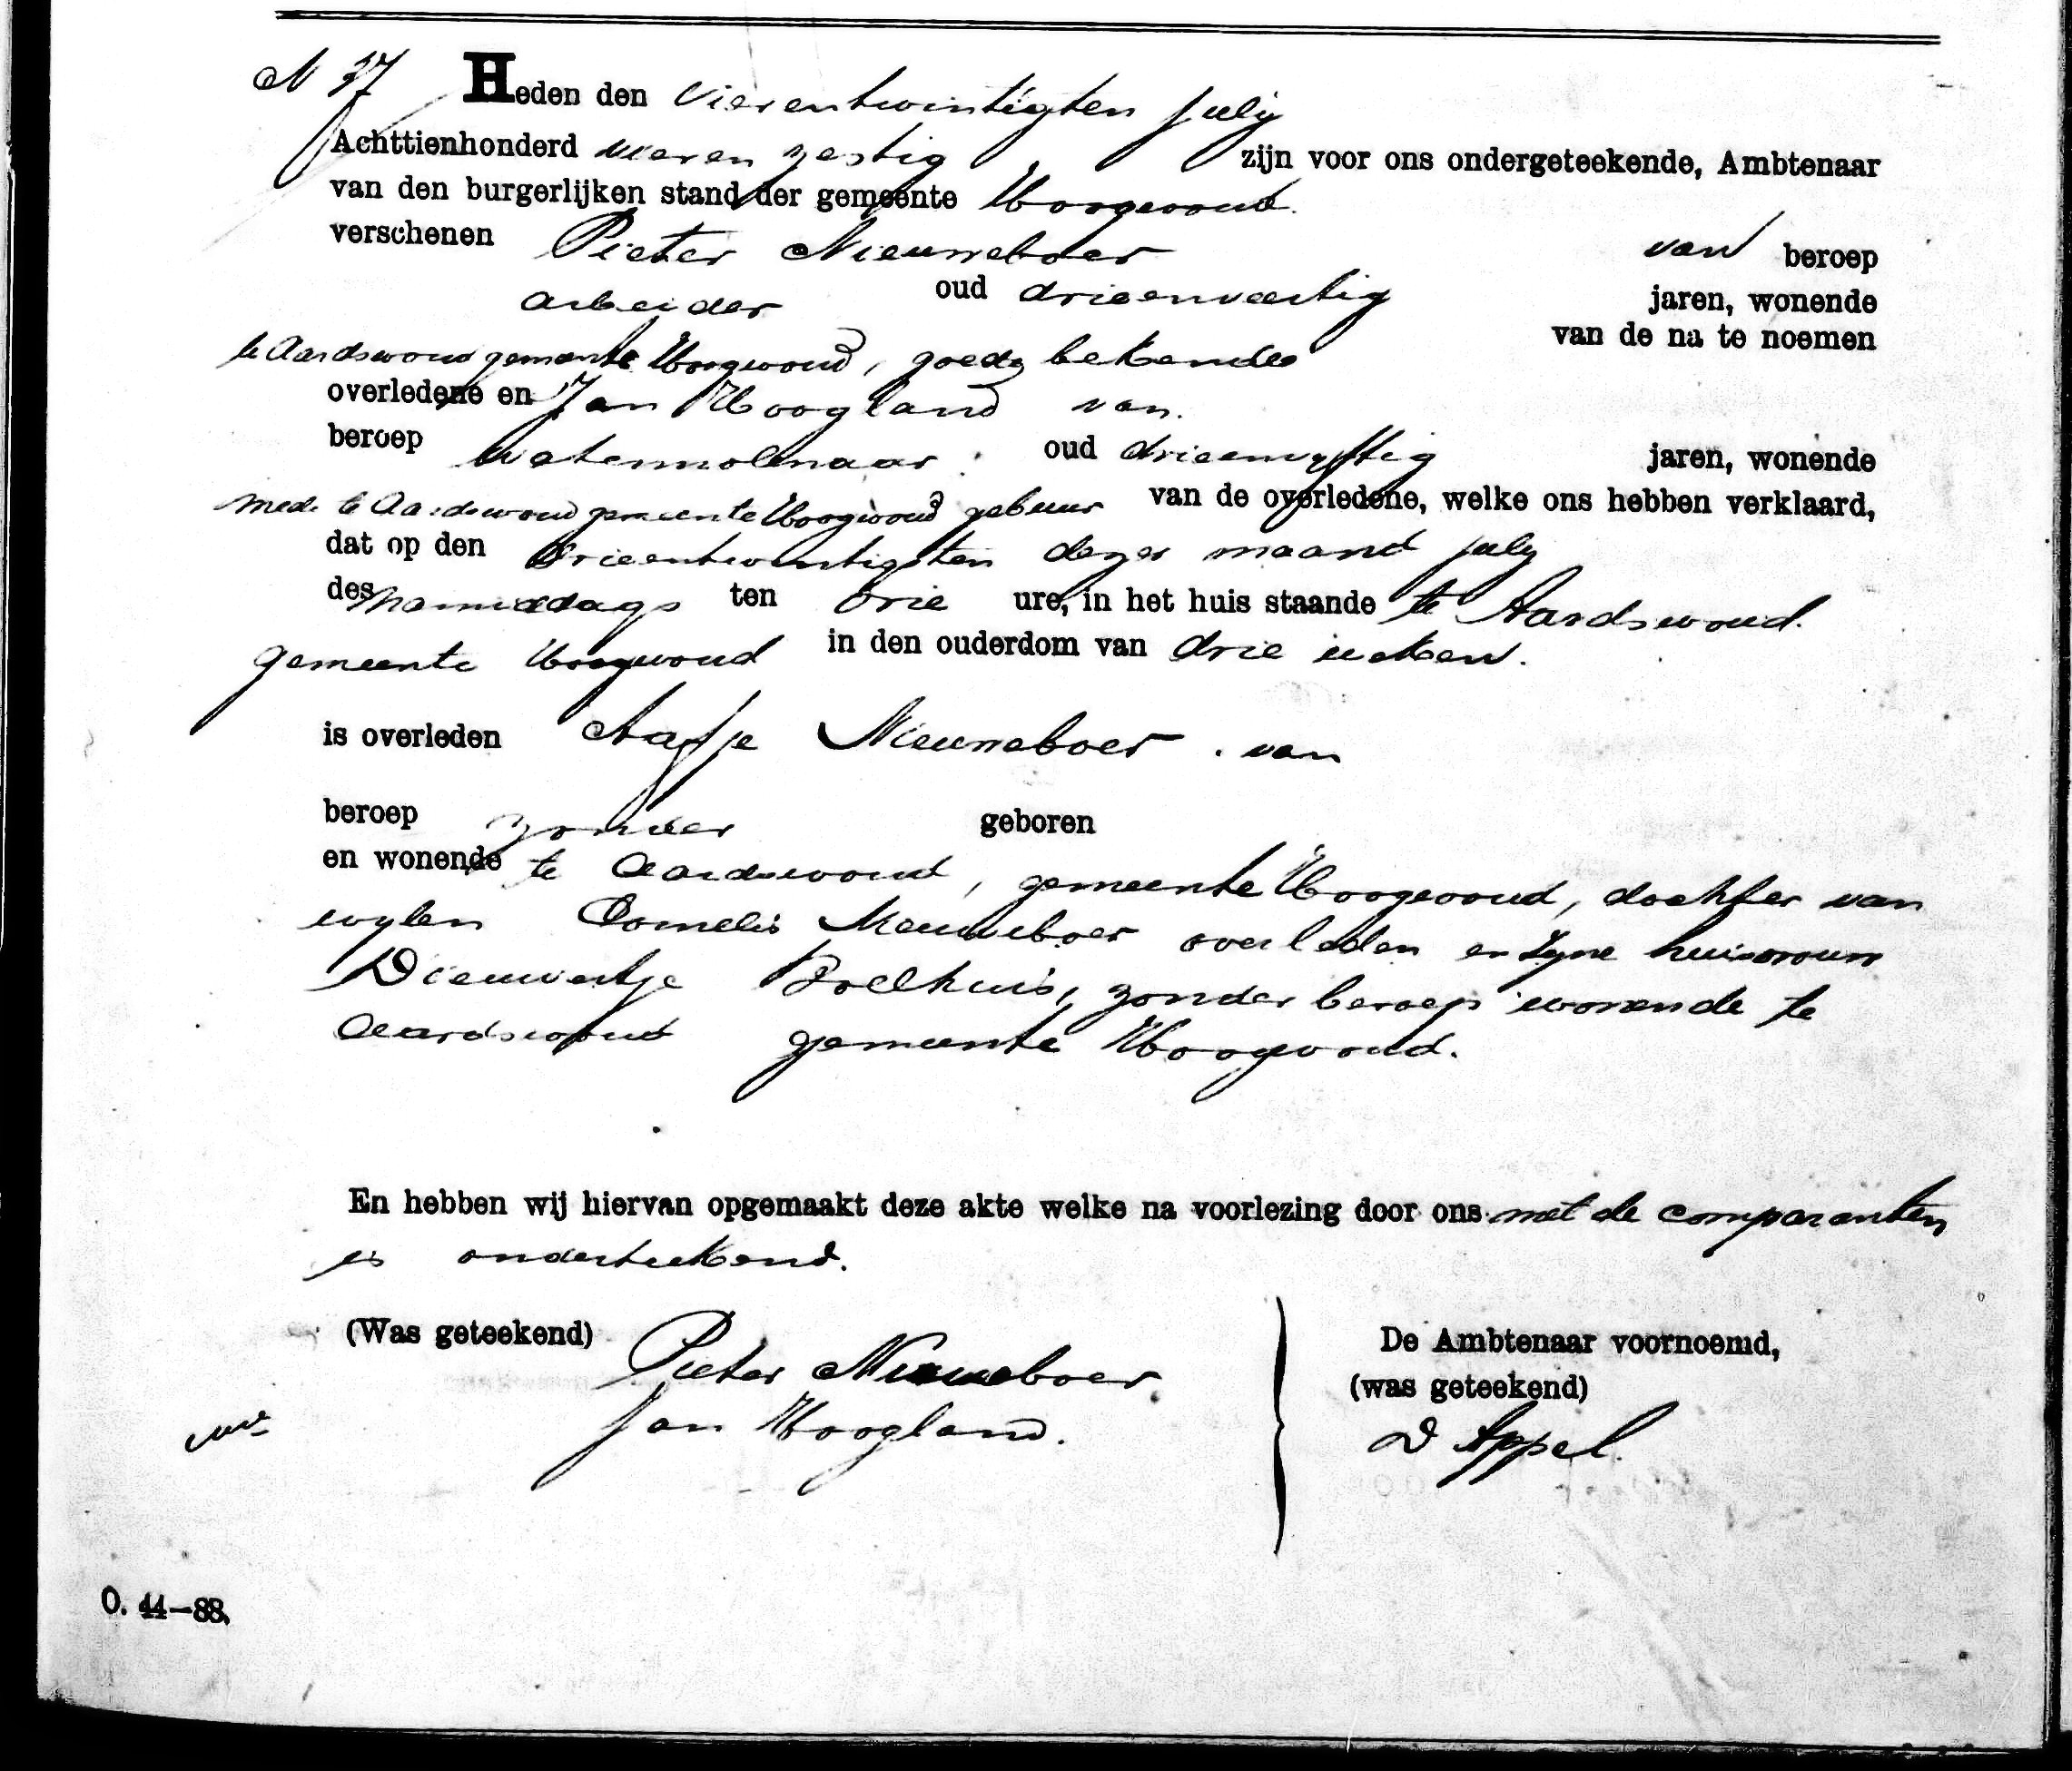 N 37 Heden den vierentwintigsten July
Achttienhonderd vieren zestig zijn voor ons ondergeteekende, Ambtenaar
van den burgerlijken stand der gemeente Hoogwoud.
verschenen Pieter Nieuweboer van beroep
arbeider oud drieenveertig jaren, wonende
van de na te noemen
te Aardswoud gemeente Hoogwoud, goede bekende
overledene en Jan Hoogland van.
beroep watermolenaar. oud drieenvyftig jaren, wonende
mede te Aardswoud gemeente Hoogwoud gebuur van de overledene, welke ons hebben verklaard,
dat op den drieentwintigsten dezer maand July
des namiddags ten drie ure, in het huis staande te Aardswoud.
gemeente Hoogwoud in den ouderdom van drie weken.
is overleden Aafje Nieuweboer. van
beroep zonder geboren
en wonende te Aardswoud, gemeente Hoogwoud, dochter van
wylen Cornelis Nieuweboer overleden en zyne huisvrouw
Dieuwertje Poelhuis, zonder beroep wonende te
Aardswoud gemeente Hoogwoud.
En hebben wij hiervan opgemaakt deze akte welke na voorlezing door ons met de comparanten
is onderteekend.
(Was geteekend) Pieter Nieuweboer
Jan Hoogland.
De Ambtenaar voornoemd,
(was geteekend)
D Appel.
O. 44—88.